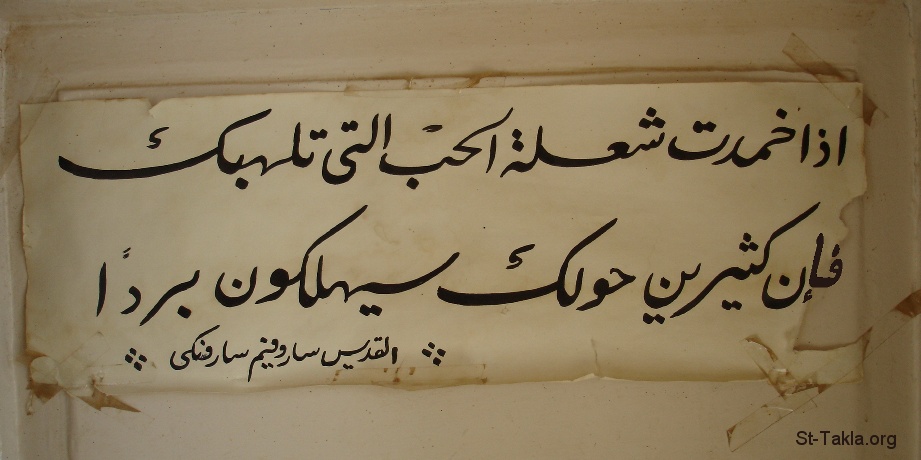 اذا خمدت شعلة الحب التي تلهبك
فإن كثيرين حولك سيهلكون بردًا
القديس ساروفيم سارفسكي
St-Takla.org